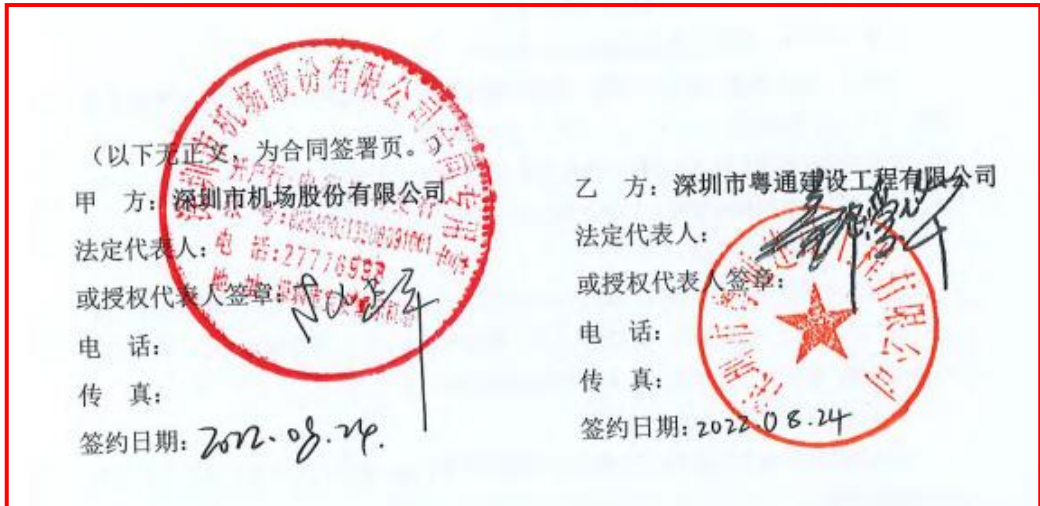 （以下无正文，为合同签署页。）
甲 方：深圳市机场股份有限公司
法定代表人：
或授权代表人签章：
电 话：
传 真：
签约日期：2022.08.24.
深圳市机场股份有限公司合同专用章
电 话：27776993
乙 方：深圳市粤通建设工程有限公司
法定代表人：
或授权代表人签章：
电 话：
传 真：
签约日期：2022.08.24
深圳市粤通建设工程有限公司